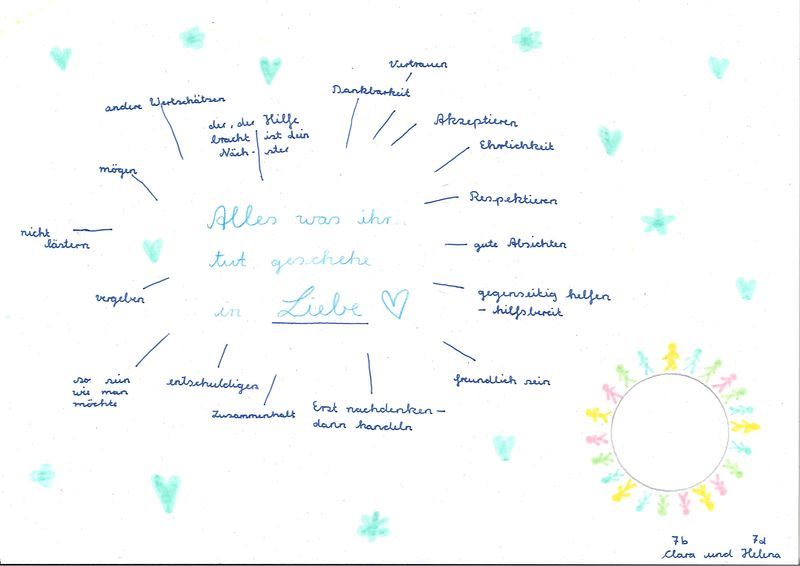 Vertrauen
Dankbarkeit
andere Wertschätzen
der, der Hilfe
bracht ist dein
Näch- ster
Akzeptieren
Ehrlichkeit
mögen
Respektieren
Alles was ihr..
tut geschehe
in Liebe
nicht
lästern
gute Absichten
vergeben
gegenseitig helfen
- hilfsbereit
so sein
wie man
möchte
entschuldigen
Zusammenhalt
Erst nachdenken –
dann handeln
freundlich sein
7b 7d
Clara und Helena